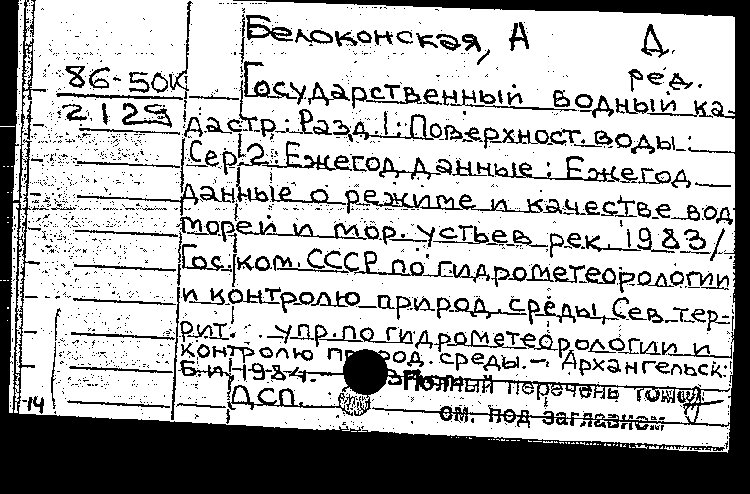 Белоконская, А Д.
ред.
86-50К
2129
Государственный водный ка-
дастр: Разд. 1: Поверхност. воды:
Сер. 2: Ежегод. данные: Ежегод.
данные о режиме и качестве вод
морей и мор. устьев рек. 1983/
Гос. ком. СССР по гидрометеорологии
и контролю природ. среды, Сев. тер-
рит. упр. по гидрометеорологии и
контролю природ. среды. - Архангельск:
Б.и., 1984. -
Полный перечень томов
ДСП.
см. под заглавием
14